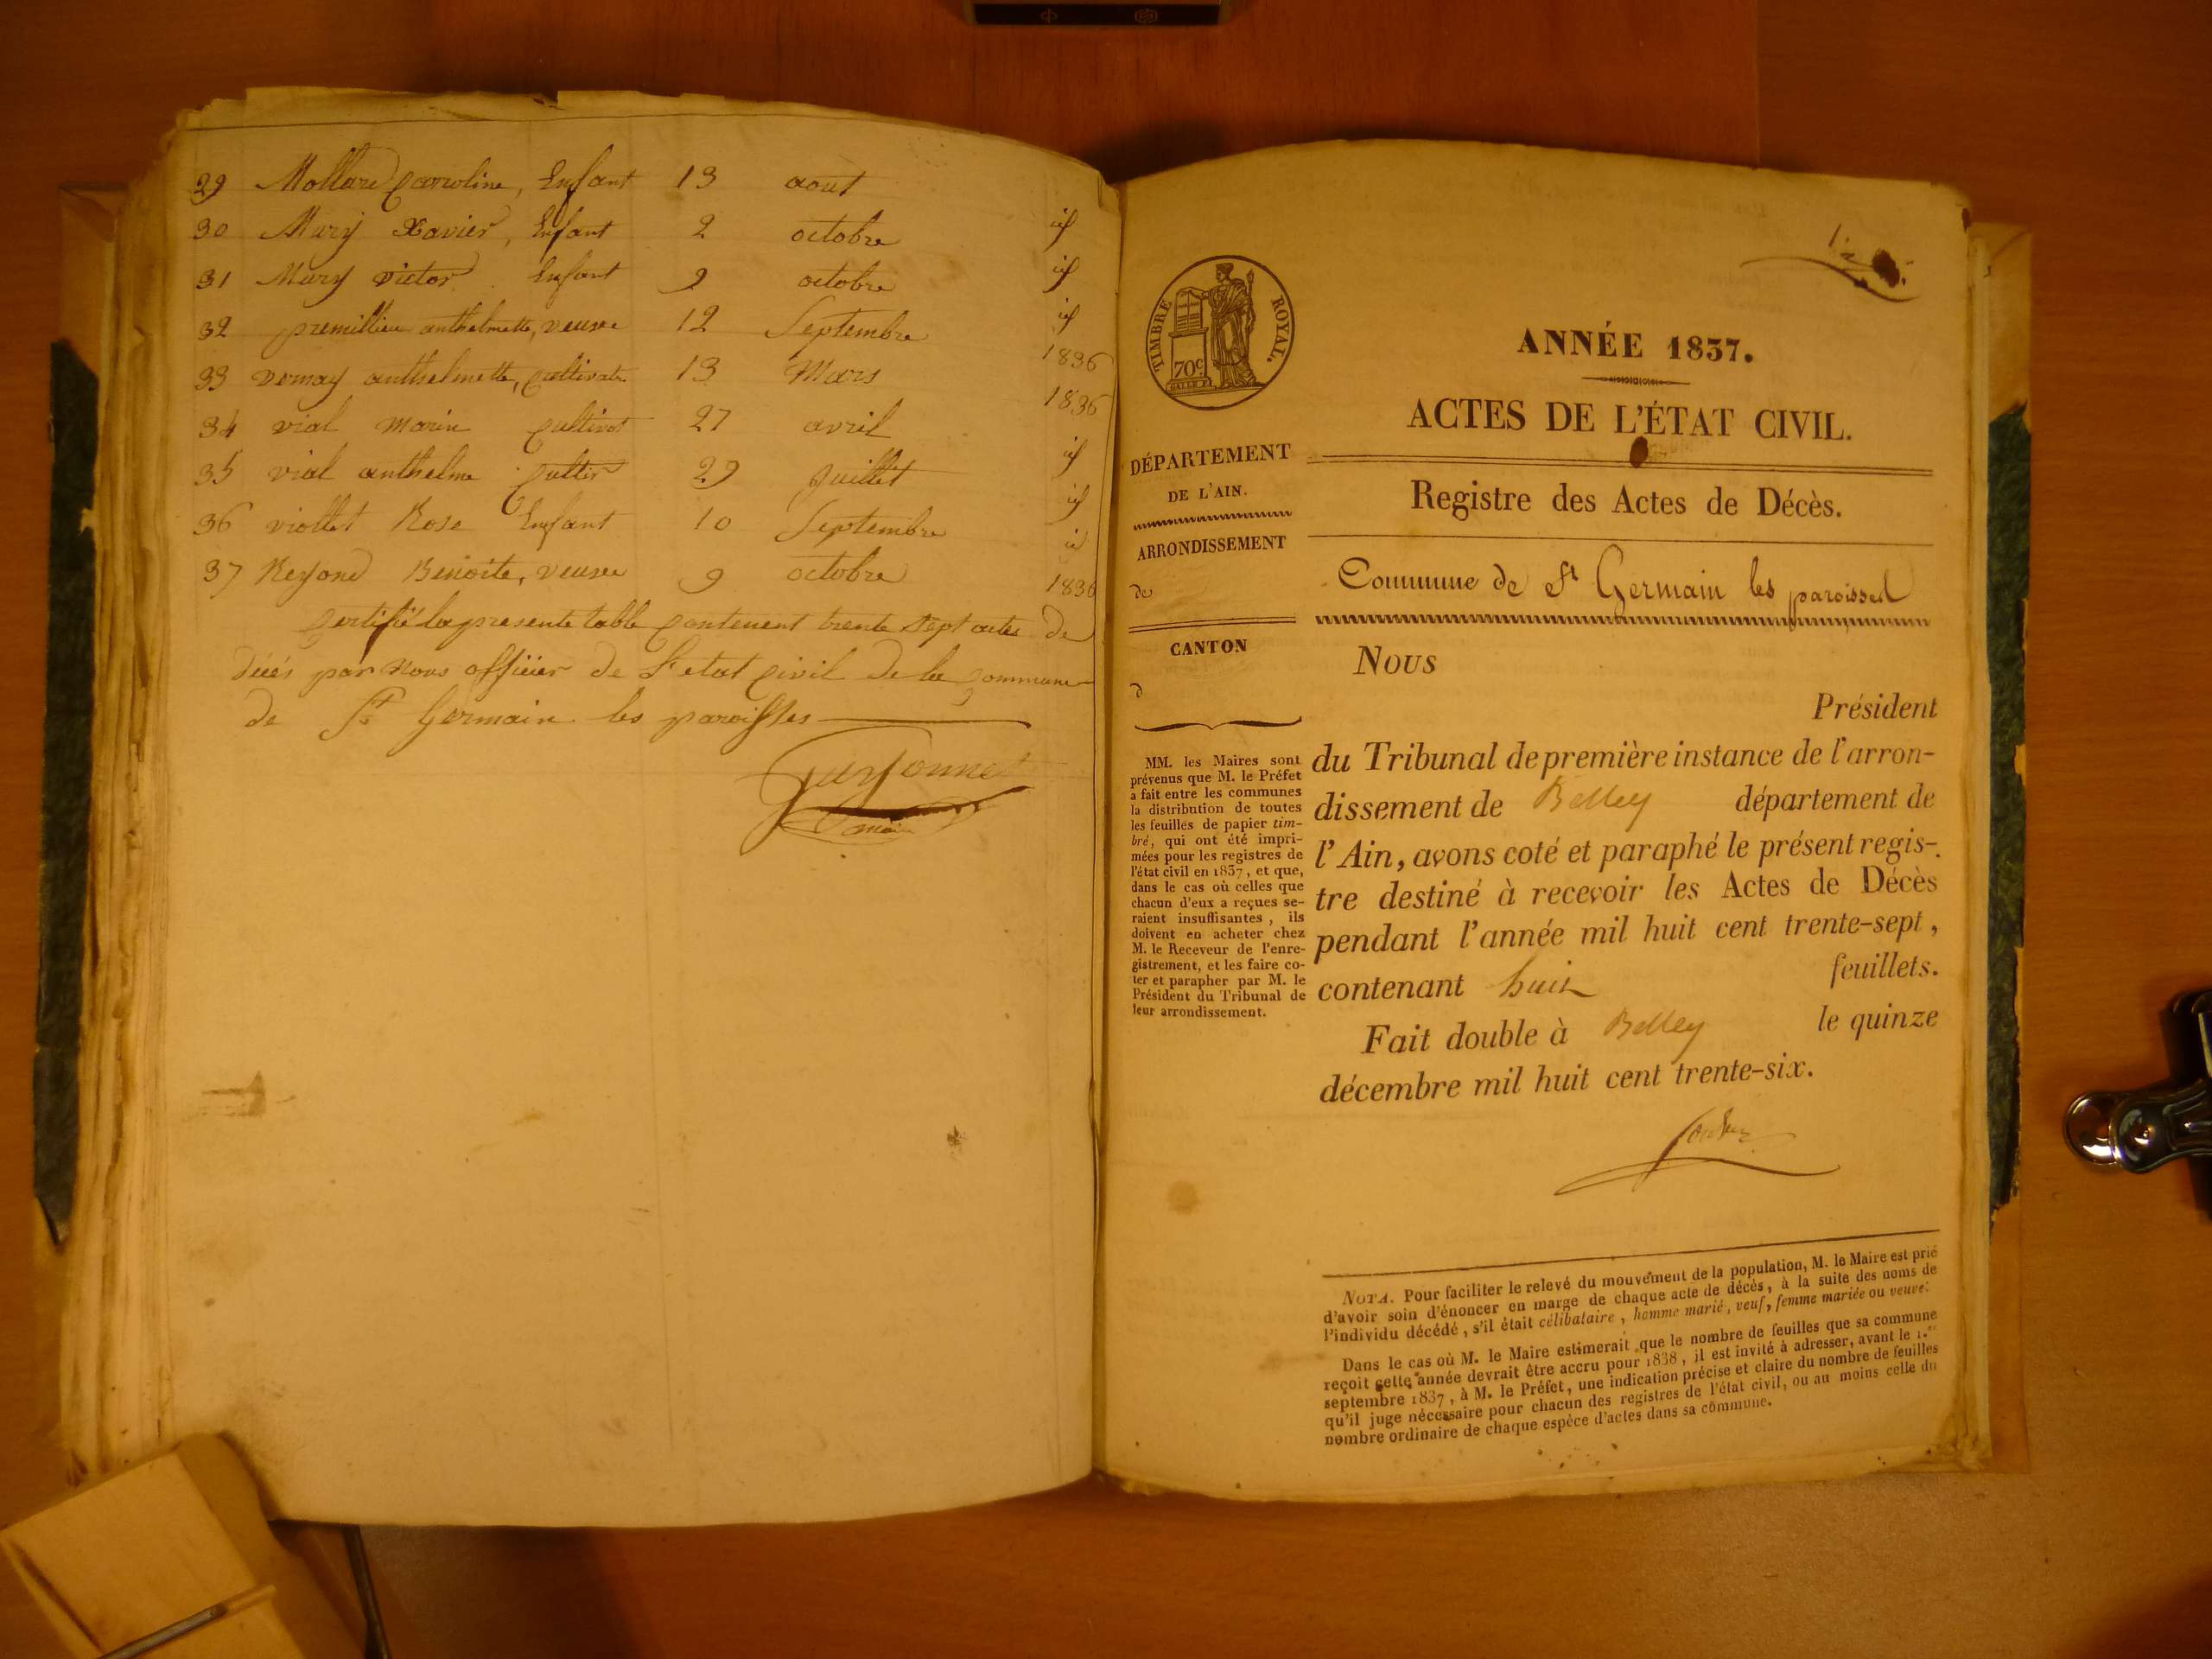 29 Mollard Carroline, Enfant 13 aout
30 Mury Xavier, Enfant 2 octobre id
31 Mury victor Enfant 9 octobre id
32 premillieu anthelmette, veuve 12 Septembre id
33 vernay anthelmette, Cultivatr 13 Mars 1836
34 vial Marin Cultivat 27 avril 1836
35 vial anthelme Cultiv 29 Juillet id
36 viollet Rose Enfant 10 Septembre id
37 Benoite, veuve 9 octobre id
1836
Certifié la presente table Contenent trente sept actes de
décés par Nous officier de L'etat Civil de la Commune
de St Germain les paroisses
Guyonnet
maire
1.
TIMBRE ROYAL.
70c
ANNÉE 1837.
ACTES DE L'ÉTAT CIVIL.
DÉPARTEMENT
DE L'AIN.
ARRONDISSEMENT
de
CANTON
d
MM. les Maires sont
prévenus que M. le Préfet
a fait entre les communes
la distribution de toutes
les feuilles de papier tim-
bré, qui ont été impri-
mées pour les registres de
l'état civil en 1837, et que,
dans le cas où celles que
chacun d'eux a reçues se-
raient insuffisantes, ils
doivent en acheter chez
M. le Receveur de l'enre-
gistrement, et les faire co-
ter et parapher par M. le
Président du Tribunal de
leur arrondissement.
Registre des Actes de Décès.
Commune de St Germain les paroisses
Nous
Président
du Tribunal de première instance de l'arron-
dissement de Belley département de
l'Ain, avons coté et paraphé le présent regis-
tre destiné à recevoir les Actes de Décès
pendant l'année mil huit cent trente-sept,
contenant huit feuillets.
Fait double à Belley le quinze
décembre mil huit cent trente-six.
NOTA. Pour faciliter le relevé du mouvement de la population, M. le Maire est prié
d'avoir soin d'énoncer en marge de chaque acte de décès, à la suite des noms de
l'individu décédé, s'il était célibataire, homme marié, veuf, femme mariée ou veuve.
Dans le cas où M. le Maire estimerait que le nombre de feuilles que sa commune
reçoit cette année devrait être accru pour 1838, il est invité à adresser, avant le 1.er
septembre 1837, à M. le Préfet, une indication précise et claire du nombre de feuilles
qu'il juge nécessaire pour chacun des registres de l'état civil, ou au moins celle du
nombre ordinaire de chaque espèce d'actes dans sa commune.